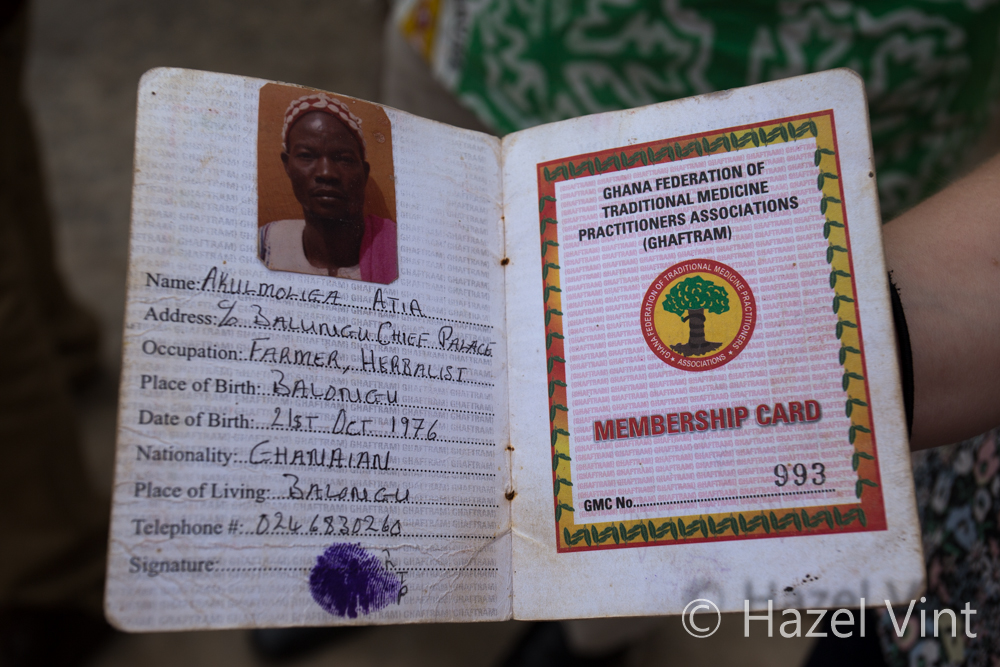 Name: AKULMOLIGA ATIA
Address: c/o BALUNGU CHIEF PALACE
Occupation: FARMER, HERBALIST
Place of Birth: BALONGU
Date of Birth: 21ST OCT 1976
Nationality: GHANAIAN
Place of Living: BALONGU
Telephone #: 0246830260
Signature:
R
T
P
GHANA FEDERATION OF
TRADITIONAL MEDICINE
PRACTITIONERS ASSOCIATIONS
(GHAFTRAM)
GHANA FEDERATION OF TRADITIONAL MEDICINE PRACTITIONERS
ASSOCIATIONS
MEMBERSHIP CARD
GMC No. 993
© Hazel Vint